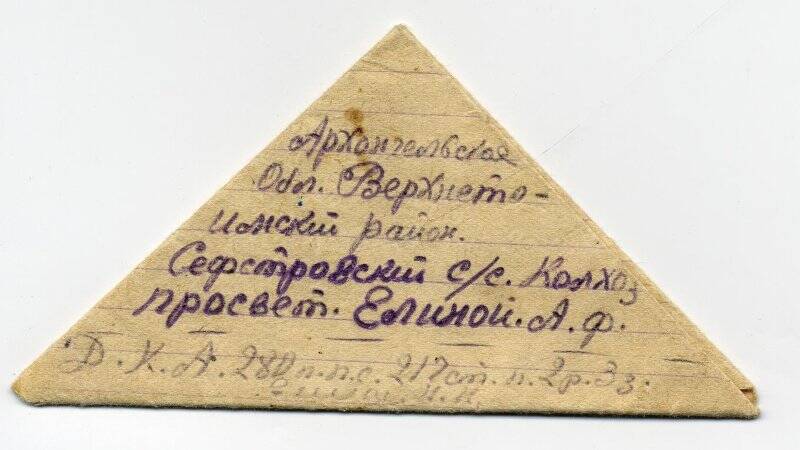 Архангельская
Обл. Верхнето-
имский район.
Сефтровский с/с. Колхоз
просвет. Елиной. А. Ф.
Д. К. А. 280 п.п.с. 217 ст. п. 2 р. 3 з.